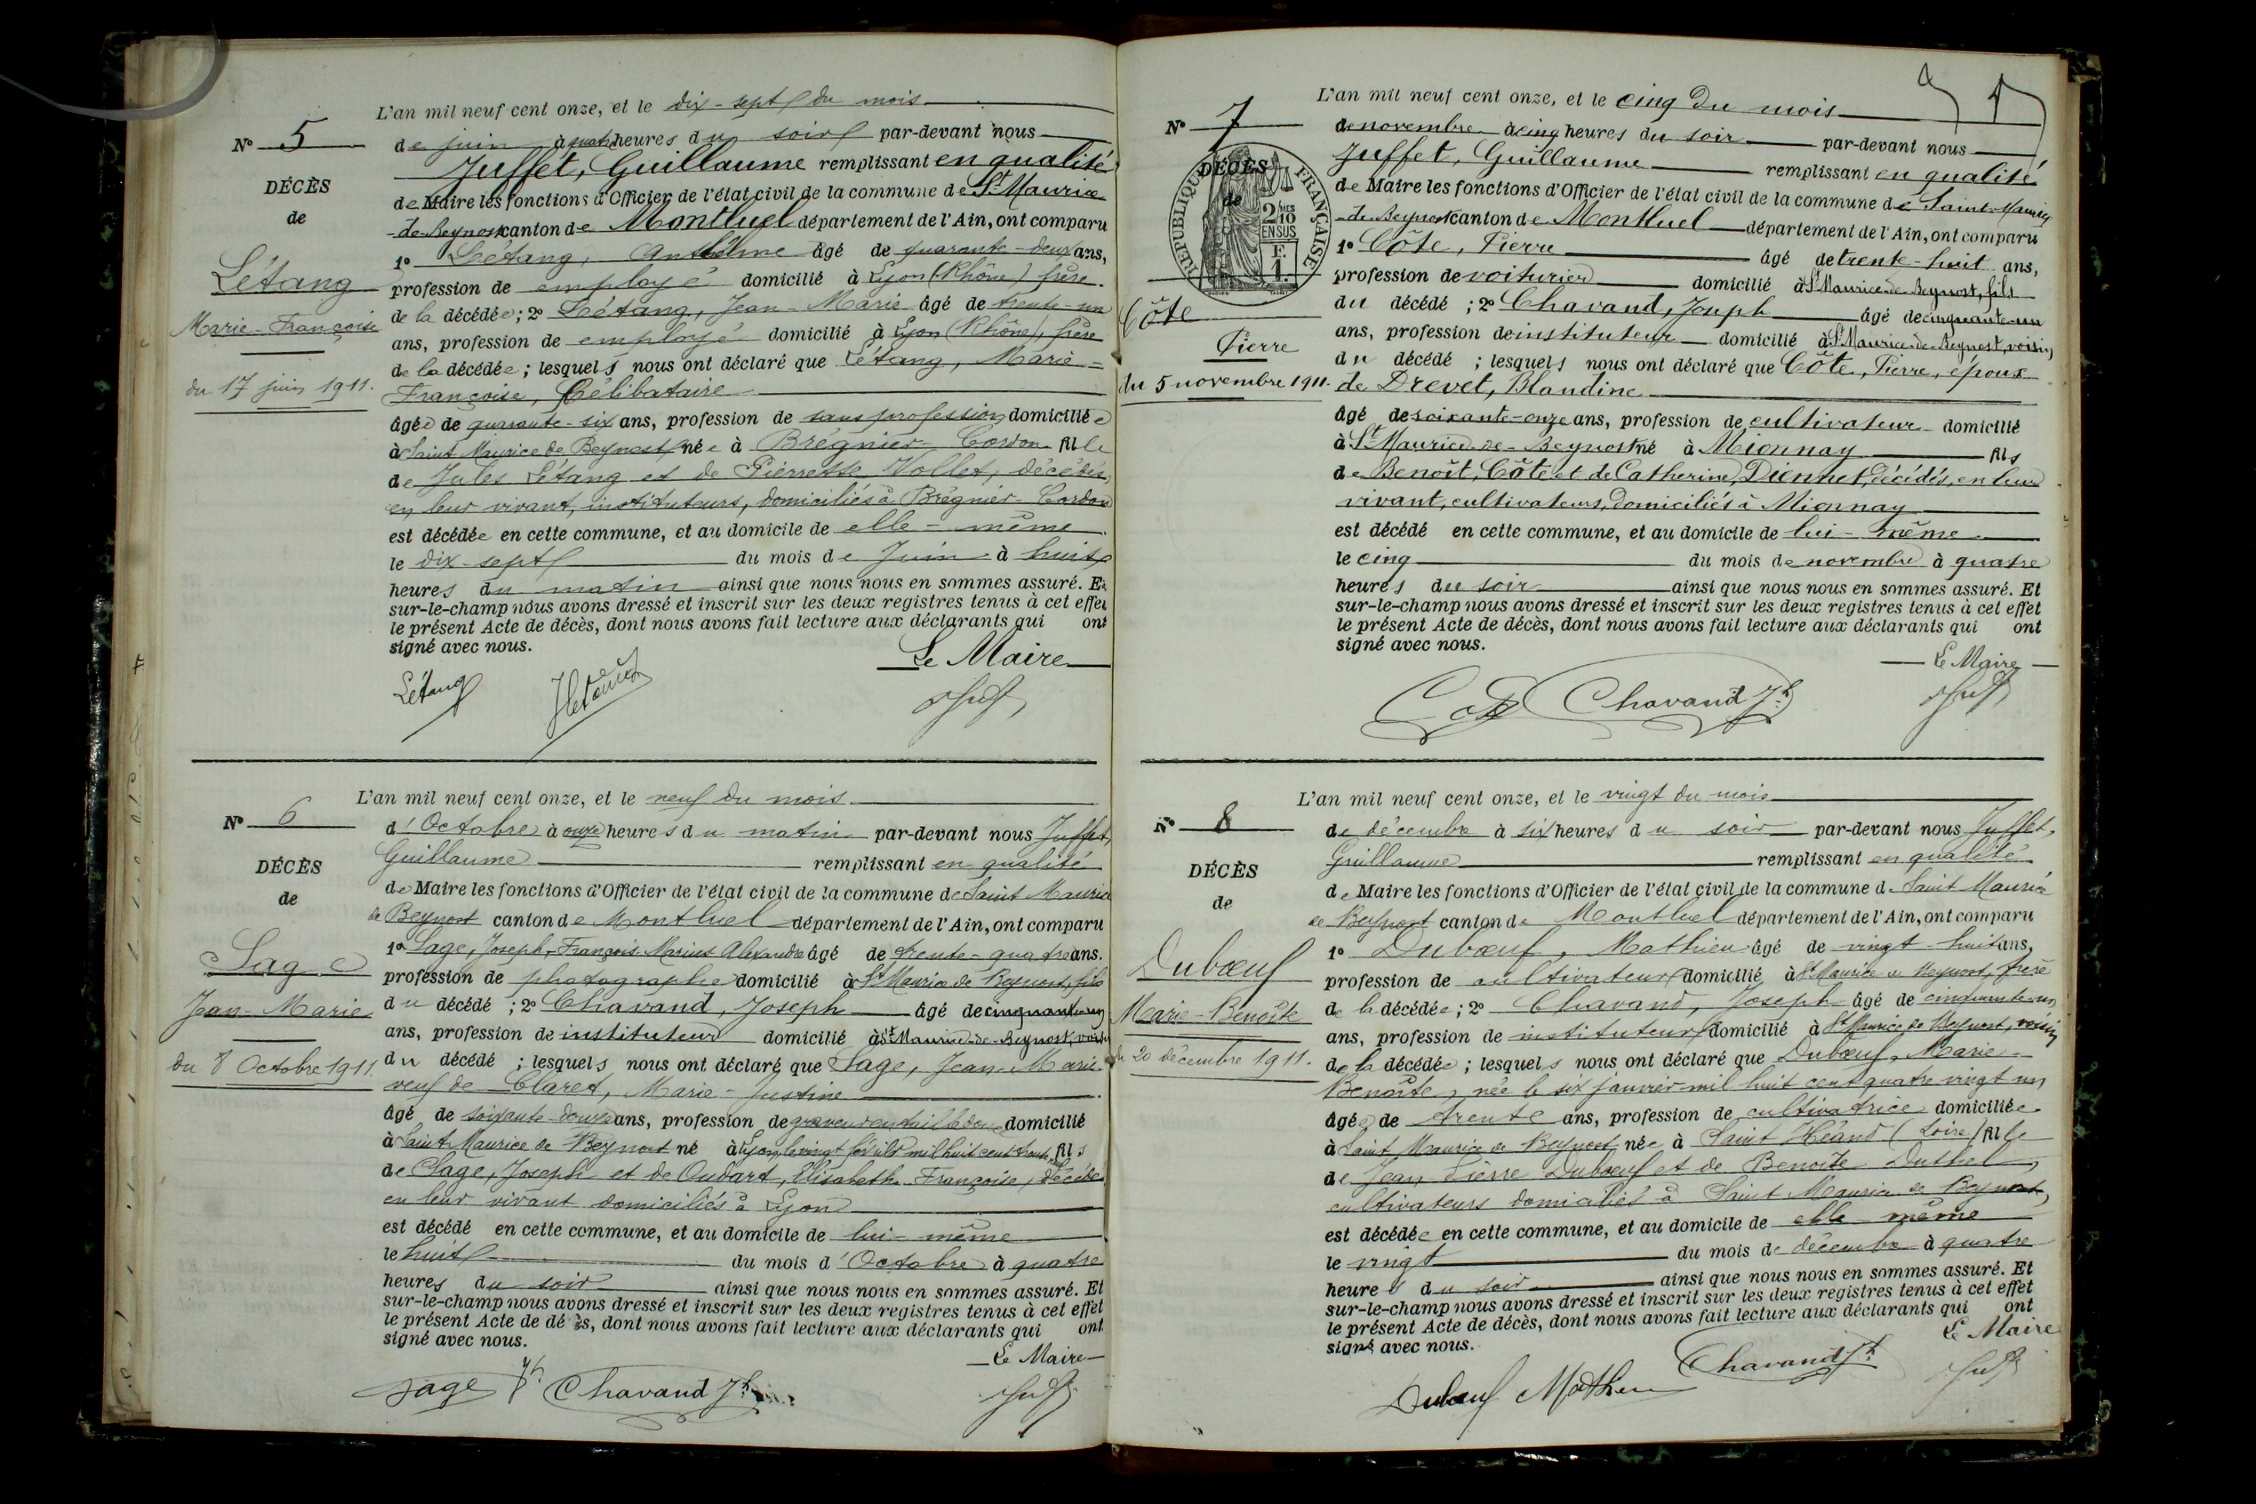 L'an mil neuf cent onze, et le dix-sept du mois
N° 5
de juin à quatre heures du soir par-devant nous
Juffet, Guillaume remplissant en qualité
DÉCÈS
de Maire les fonctions d'Officier de l'état civil de la commune de St Maurice
de
-de-Beynost canton de Montluel département de l'Ain, ont comparu
1° Létang, Anthelme âgé de quarante-deux ans,
Létang
profession de employé domicilié à Lyon (Rhône) frère
de la décédée; 2° Létang, Jean-Marie âgé de trente-un
Marie-Françoise
ans, profession de employé domicilié à Lyon (Rhône), frère
de la décédée; lesquels nous ont déclaré que Létang, Marie=
du 17 juin 1911.
Françoise, Célibataire
âgée de quarante-six ans, profession de sans profession domiciliée
à Saint Maurice de Beynost née à Brégnier-Cordon fille
de Jules Létang et de Pierrette Vollet, décédés,
en leur vivant, instituteurs, domiciliés à Brégnier-Cordon
est décédée en cette commune, et au domicile de elle-même
le dix-sept du mois de Juin à huit
heures du matin ainsi que nous nous en sommes assuré. Et
sur-le-champ nous avons dressé et inscrit sur les deux registres tenus à cet effet
le présent Acte de décès, dont nous avons fait lecture aux déclarants qui ont
signé avec nous.
Le Maire
Létang
JLétang
Juffet
L'an mil neuf cent onze, et le neuf du mois
N° 6
d'Octobre à onze heures du matin par-devant nous Juffet,
Guillaume remplissant en qualité
DÉCÈS
de Maire les fonctions d'Officier de l'état civil de la commune de Saint Maurice
de
de Beynost canton de Montluel département de l'Ain, ont comparu
1° Sage, Joseph-François Marius Alexandre âgé de trente-quatre ans.
Sage
profession de photographe domicilié à St Maurice de Beynost, fils
Jean-Marie
du décédé; 2° Chavand, Joseph âgé de cinquante-un
ans, profession de instituteur domicilié à St Maurice-de-Beynost, voisin
du 8 Octobre 1911.
du décédé; lesquels nous ont déclaré que Sage, Jean-Marie
veuf de Claret, Marie-Justine
âgé de soixante-douze ans, profession de graveur en taille douce domicilié
à Saint Maurice de Beynost né à Lyon, le vingt mil huit cent trente fils
de Sage, Joseph et de Oudart, Elisabeth Françoise, décédés
en leur vivant domiciliés à Lyon
est décédé en cette commune, et au domicile de lui-même
le huit du mois d'Octobre à quatre
heures du soir ainsi que nous nous en sommes assuré. Et
sur-le-champ nous avons dressé et inscrit sur les deux registres tenus à cet effet
le présent Acte de décès, dont nous avons fait lecture aux déclarants qui ont
signé avec nous.
Le Maire
Sage Jh
Chavand Jh
Juffet
L'an mil neuf cent onze, et le cinq du mois
N° 7
de novembre à cinq heures du soir par-devant nous
Juffet, Guillaume remplissant en qualité
DÉCÈS
de Maire les fonctions d'Officier de l'état civil de la commune de Saint-Maurice
de
RÉPUBLIQUE FRANÇAISE
2/10 EN SUS
F. 1
-de-Beynost canton de Montluel département de l'Ain, ont comparu
1° Côte, Pierre âgé de trente-huit ans,
profession de voiturier domicilié à St Maurice-de-Beynost, fils
du décédé; 2° Chavand, Joseph âgé de cinquante-un
Côte
ans, profession de instituteur domicilié à St Maurice-de-Beynost, voisin
Pierre
du décédé; lesquels nous ont déclaré que Côte, Pierre, époux
du 5 novembre 1911.
de Drevet, Blandine
âgé de soixante-onze ans, profession de cultivateur domicilié
à St Maurice-de-Beynost né à Mionnay fils
de Benoît Côte et de Catherine Diennet, décédés, en leur
vivant, cultivateurs, domiciliés à Mionnay
est décédé en cette commune, et au domicile de lui-même
le cinq du mois de novembre à quatre
heures du soir ainsi que nous nous en sommes assuré. Et
sur-le-champ nous avons dressé et inscrit sur les deux registres tenus à cet effet
le présent Acte de décès, dont nous avons fait lecture aux déclarants qui ont
signé avec nous.
Le Maire
Cote
Chavand Jh
Juffet
L'an mil neuf cent onze, et le vingt du mois
N° 8
de décembre à six heures du soir par-devant nous Juffet,
Guillaume remplissant en qualité
DÉCÈS
de Maire les fonctions d'Officier de l'état civil de la commune de Saint Maurice
de
de Beynost canton de Montluel département de l'Ain, ont comparu
1° Dubœuf, Mathieu âgé de vingt-huit ans,
Dubœuf
profession de cultivateur domicilié à St Maurice de Beynost, frère
Marie-Benoîte
de la décédée; 2° Chavand, Joseph âgé de cinquante-un
ans, profession de instituteur domicilié à St Maurice de Beynost, voisin
du 20 décembre 1911.
de la décédée; lesquels nous ont déclaré que Dubœuf, Marie-
Benoîte, née le six janvier mil huit cent quatre vingt un,
âgée de trente ans, profession de cultivatrice domiciliée
à Saint Maurice de Beynost née à Saint Héand (Loire) fille
de Jean Pierre Dubœuf et de Benoîte Duthel,
cultivateurs domiciliés à Saint Maurice de Beynost,
est décédée en cette commune, et au domicile de elle-même
le vingt du mois de décembre à quatre
heures du soir ainsi que nous nous en sommes assuré. Et
sur-le-champ nous avons dressé et inscrit sur les deux registres tenus à cet effet
le présent Acte de décès, dont nous avons fait lecture aux déclarants qui ont
signé avec nous.
Le Maire
Dubœuf Mathieu
Chavand Jh
Juffet